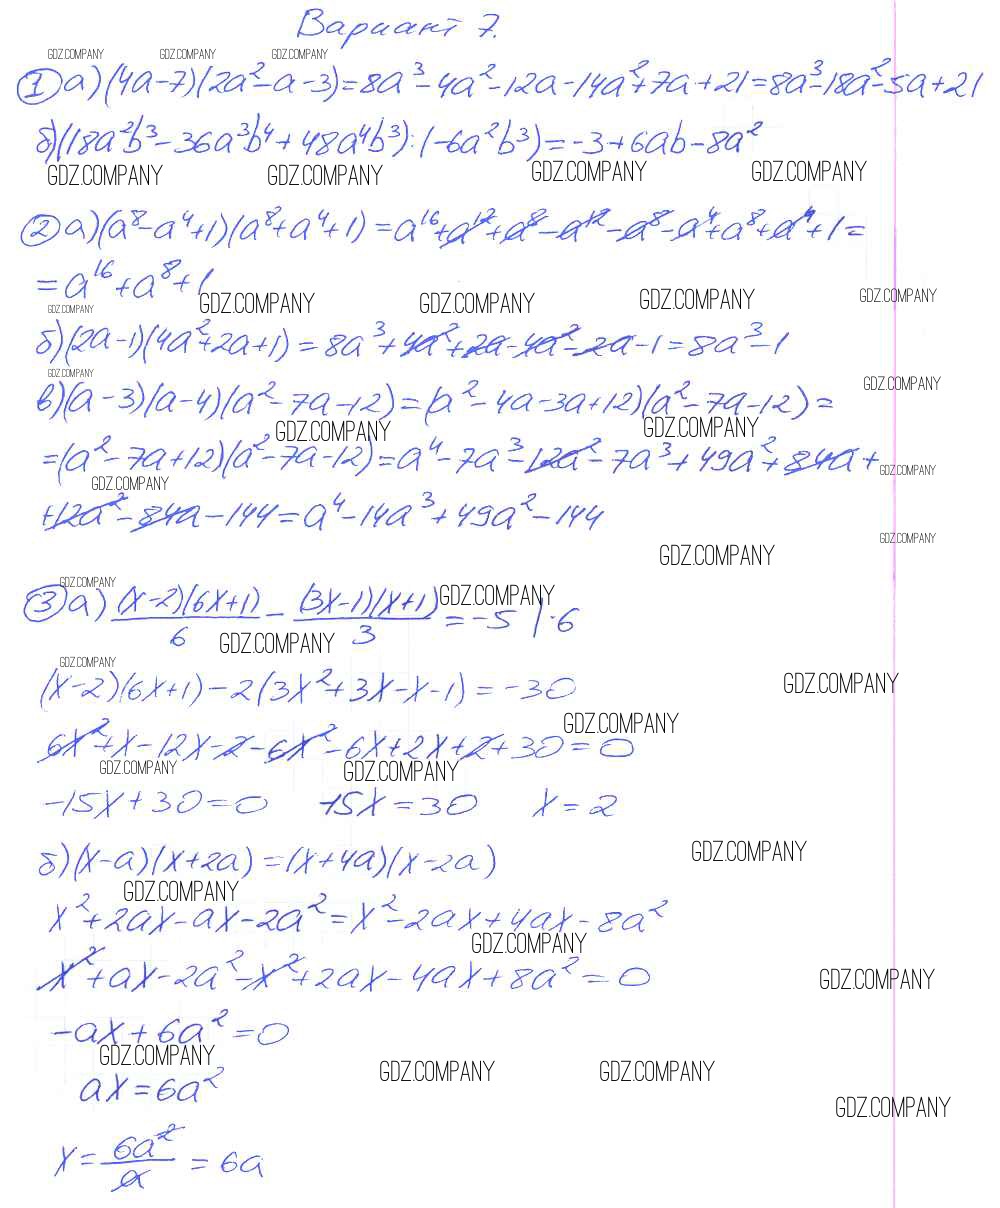 Вариант 7.
GDZ.COMPANY GDZ.COMPANY GDZ.COMPANY
① а) (4a-7)(2a²-a-3)=8a³-4a²-12a-14a²+7a+21=8a³-18a²-5a+21
б) (18a²b³-36a³b⁴+48a⁴b³):(-6a²b³)=-3+6ab-8a²
GDZ.COMPANY GDZ.COMPANY GDZ.COMPANY GDZ.COMPANY
② а) (a⁸-a⁴+1)(a⁸+a⁴+1)=a¹⁶+a¹²+a⁸-a¹²-a⁸-a⁴+a⁸+a⁴+1=
=a¹⁶+a⁸+1
GDZ.COMPANY GDZ.COMPANY GDZ.COMPANY GDZ.COMPANY GDZ.COMPANY
б) (2a-1)(4a²+2a+1)=8a³+4a²+2a-4a²-2a-1=8a³-1
GDZ.COMPANY GDZ.COMPANY
в) (a-3)(a-4)(a²-7a-12)=(a²-4a-3a+12)(a²-7a-12)=
GDZ.COMPANY GDZ.COMPANY
=(a²-7a+12)(a²-7a-12)=a⁴-7a³-12a²-7a³+49a²+84a+
GDZ.COMPANY GDZ.COMPANY
+12a²-84a-144=a⁴-14a³+49a²-144
GDZ.COMPANY GDZ.COMPANY
GDZ.COMPANY GDZ.COMPANY
③ а) (x-2)(6x+1)/6 - (3x-1)(x+1)/3 = -5 |·6
GDZ.COMPANY GDZ.COMPANY
(x-2)(6x+1)-2(3x²+3x-x-1)=-30
GDZ.COMPANY GDZ.COMPANY
6x²+x-12x-2-6x²-6x+2x+2+30=0
GDZ.COMPANY GDZ.COMPANY
-15x+30=0 15x=30 x=2
б) (x-a)(x+2a)=(x+4a)(x-2a)
GDZ.COMPANY GDZ.COMPANY
x²+2ax-ax-2a²=x²-2ax+4ax-8a²
GDZ.COMPANY
x²+ax-2a²-x²+2ax-4ax+8a²=0
GDZ.COMPANY
-ax+6a²=0
GDZ.COMPANY GDZ.COMPANY GDZ.COMPANY
ax=6a²
GDZ.COMPANY
x=6a²/a=6a